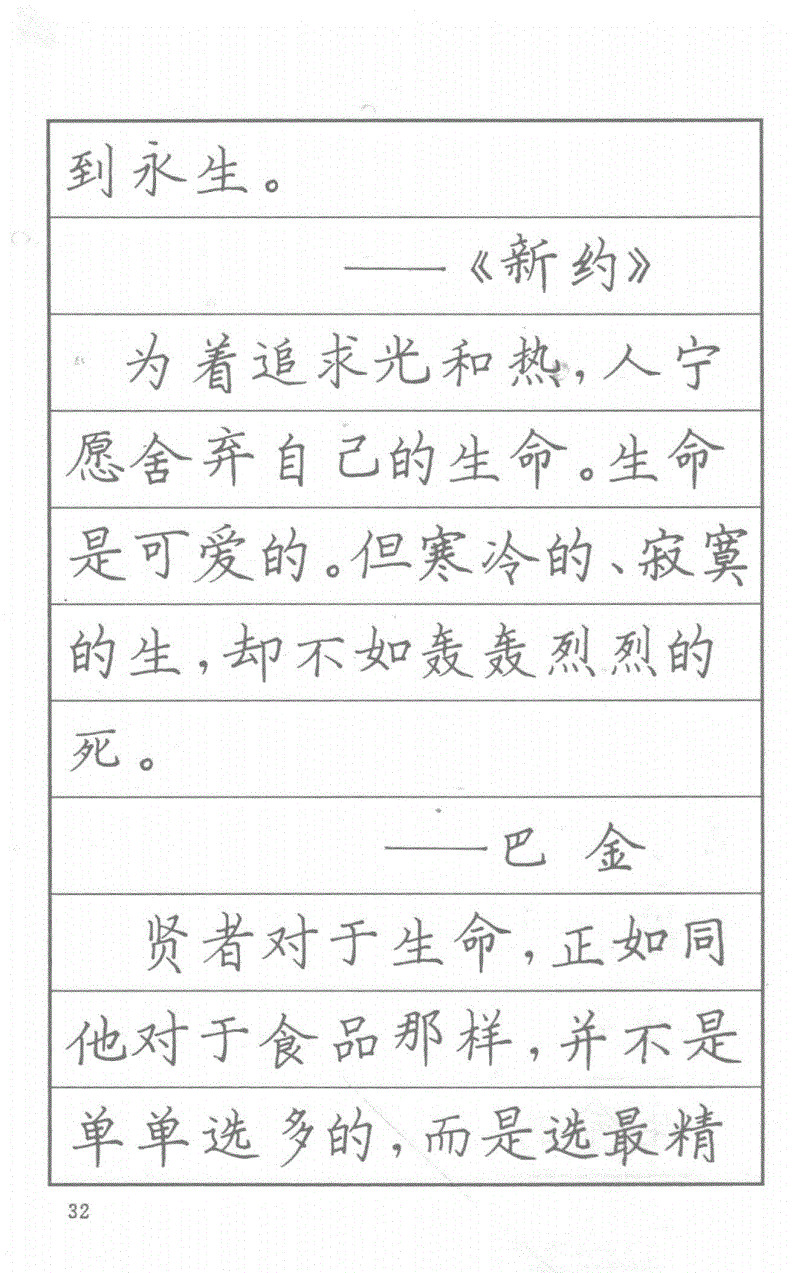 到永生。
——《新约》
为着追求光和热，人宁
愿舍弃自己的生命。生命
是可爱的。但寒冷的、寂寞
的生，却不如轰轰烈烈的
死。
——巴 金
贤者对于生命，正如同
他对于食品那样，并不是
单单选多的，而是选最精
32